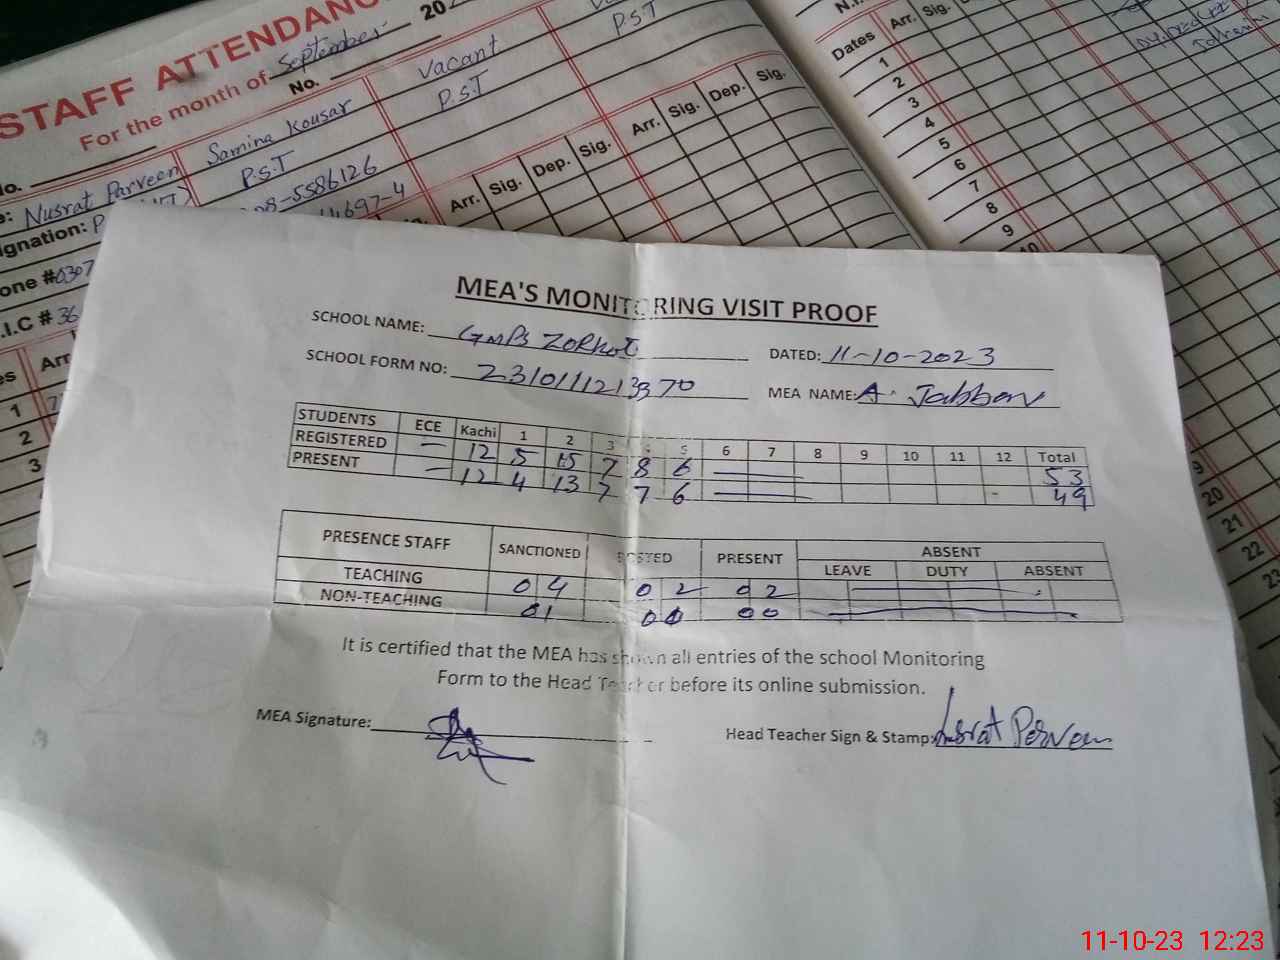 STAFF ATTENDANC
For the month of September 20
No.
Nusrat Parveen Samina Kousar Vacant
P.S.T P.S.T P.S.T
ignation:
one #0307 08-5586126
.I.C # 36 4697-4
Arr. Sig. Dep. Sig. Arr. Sig. Dep. Sig.
Dates Arr. Sig.
1
2
3
4
5
6
7
8
9
10
1
2
3
20
21
22
23
MEA'S MONITORING VISIT PROOF
SCHOOL NAME: GMPS ZORKOT DATED: 11-10-2023
SCHOOL FORM NO: 2310111213370 MEA NAME: A. Jabbar
STUDENTS ECE Kachi 1 2 3 4 5 6 7 8 9 10 11 12 Total
REGISTERED — 12 5 15 7 8 6 — 53
PRESENT — 12 4 13 7 7 6 — 49
PRESENCE STAFF SANCTIONED POSTED PRESENT ABSENT
LEAVE DUTY ABSENT
TEACHING 04 02 02 —
NON-TEACHING 01 00 00 —
It is certified that the MEA has shown all entries of the school Monitoring
Form to the Head Teacher before its online submission.
MEA Signature: Head Teacher Sign & Stamp: Nusrat Perveen
11-10-23 12:23